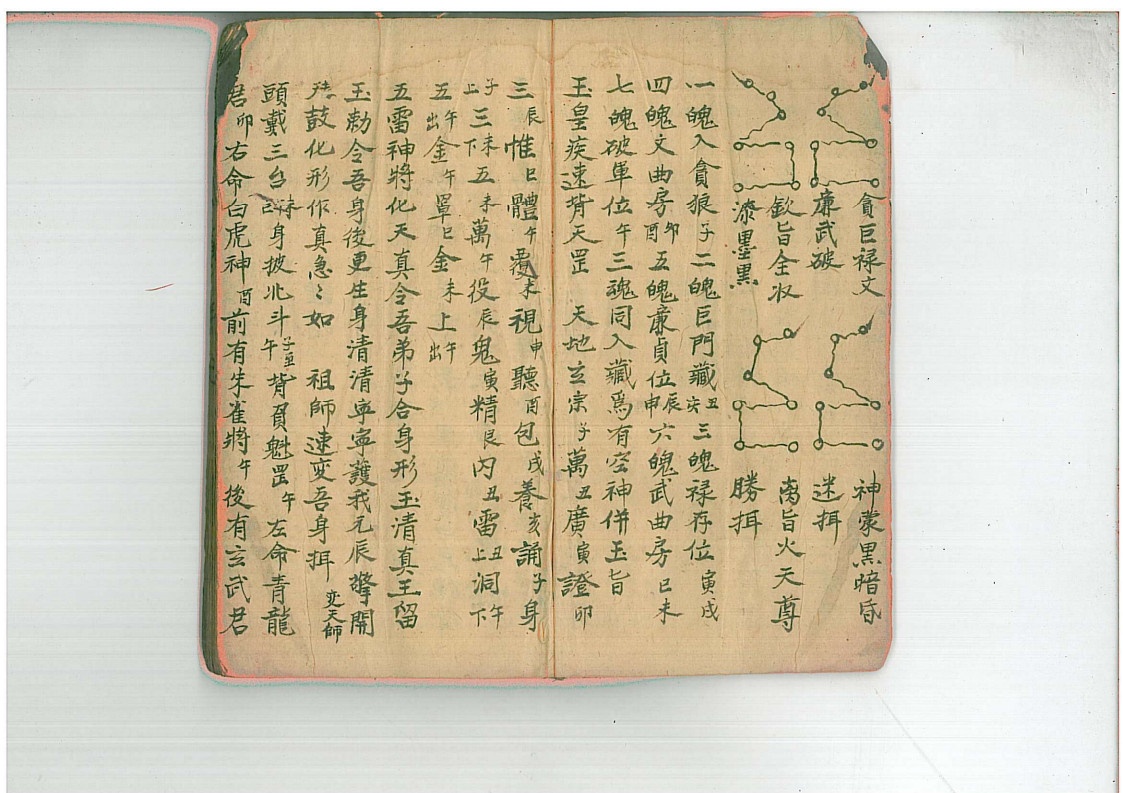 貪巨禄文 神蒙黒暗昏
廉武破 迷挕
欽旨全収 萬旨火天尊
漆墨黒 勝挕
一魄入貪狼子二魄巨門藏丑亥三魄禄存位寅戌
四魄文曲房卯酉五魄廉貞位辰申六魄武曲房巳未
七魄破軍位午三魂同入藏爲有空神併玉旨
玉皇疾速背天罡 天地玄宗子萬丑廣寅證卯
三辰惟巳體午覆未視申聽酉包戌養亥誦子身
子上三未下五未萬午役辰鬼寅精艮内丑雷丑上洞午下
五午出金午罩巳金未上午出
五雷神將化天真令吾弟子合身形玉清真王留
玉勅令吾身後更生身清清寧寧護我元辰擎開
鼓化形作真急〻如 祖師速变吾身挕 変天師
頭戴三台未巳身披北斗午子丑背負魁罡午左命青龍
君卯右命白虎神酉前有朱雀將午後有玄武君